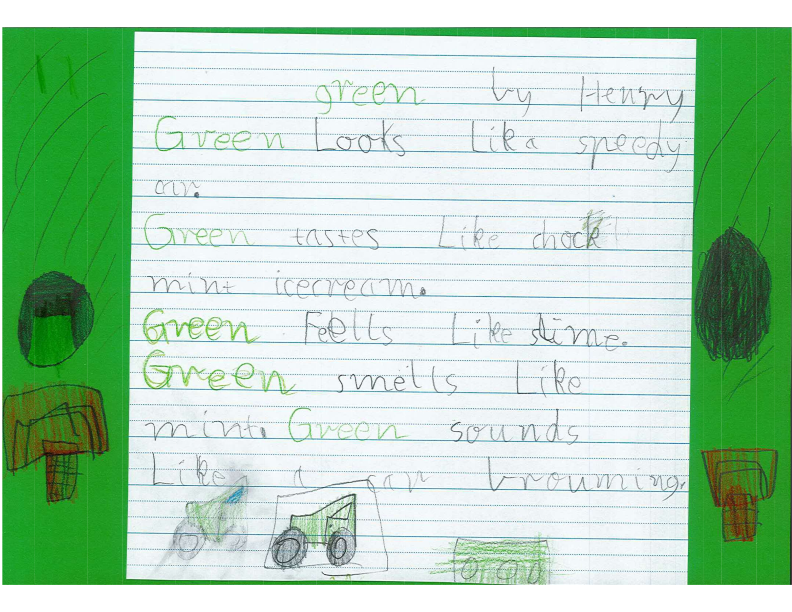 green by Henry
Green Looks Like a speedy
car.
Green tastes Like chock
mint icecream.
Green Feells Like slime.
Green smells Like
mint. Green sounds
Like a car brouming.